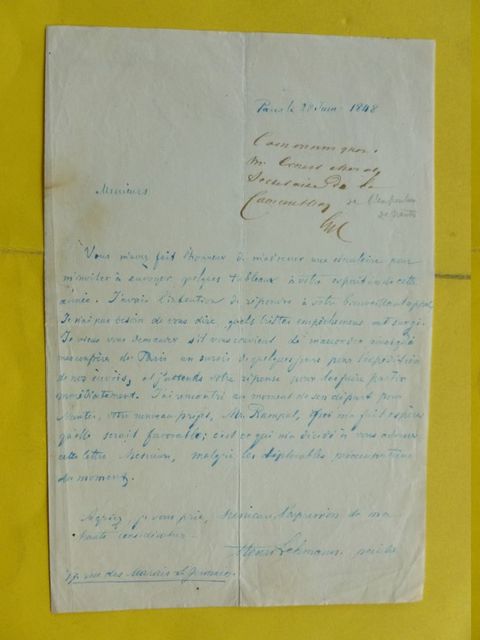 Paris le 28 Juin 1848
Communiquer
Mr Ernest
Secrétaire de la
Commission de l'exposition
de Nantes
Messieurs
Vous m'avez fait l'honneur de m'adresser une circulaire pour
m'inviter à envoyer quelques tableaux à votre exposition de cette
année. J'avais l'intention de répondre à votre bienveillant appel
Je n'ai pas besoin de vous dire quels tristes empêchements ont surgi.
Je viens vous demander s'il vous convient de m'accorder ainsi qu'à
mes confrères de Paris un sursis de quelques jours pour l'expédition
de nos envois, et j'attends votre réponse pour les faire partir
immédiatement. J'ai rencontré au moment de son départ pour
Nantes, votre nouveau préfet, Mr. Rampal, qui m'a fait espérer
qu'elle serait favorable; c'est ce qui m'a décidé à vous adresser
cette lettre Messieurs, malgré les déplorables préoccupations
du moment.
Agréez je vous prie, Messieurs l'expression de ma
haute considération.
Henri Lehmann peintre
17. rue des Marais St Germain.